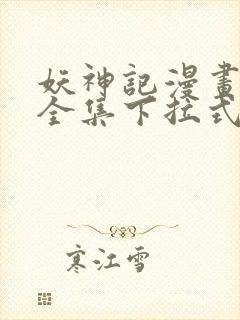 妖神記漫畫
全集下拉式
寒江雪